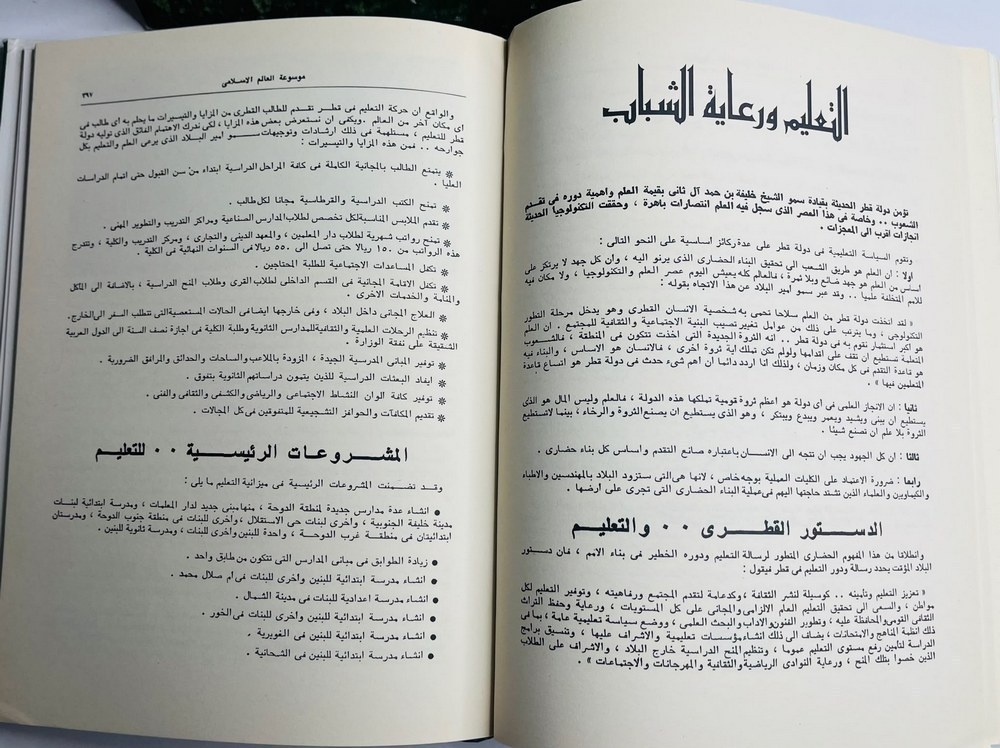 التعليم ورعاية الشباب
تؤمن دولة قطر الحديثة بقيادة سمو الشيخ خليفة بن حمد آل ثانى بقيمة العلم واهمية دوره فى تقدم
الشعوب .. وخاصة فى هذا العصر الذى سجل فيه العلم انتصارات باهرة ، وحققت التكنولوجيا الحديثة
انجازات اقرب الى المعجزات .
وتقوم السياسة التعليمية فى دولة قطر على عدة ركائز اساسية على النحو التالى :
اولا : ان العلم هو طريق الشعب الى تحقيق البناء الحضارى الذى يرنو اليه ، وان كل جهد لا يرتكز على
اساس من العلم هو جهد ضائع وبلا ثمرة ، فالعالم كله يعيش اليوم عصر العلم والتكنولوجيا ، ولا مكان فيه
للامم المتخلفة علميا .. وقد عبر سمو امير البلاد عن هذا الاتجاه بقوله :
« لقد اتخذت دولة قطر من العلم سلاحا تحمى به شخصية الانسان القطرى وهو يدخل مرحلة التطور
التكنولوجى ، وما يترتب على ذلك من عوامل تغيير تصيب البنية الاجتماعية والثقافية للمجتمع . ان العلم
هو اكبر استثمار نقوم به فى دولة قطر .. انه الثروة الجديدة التى اخذت تتكون فى المنطقة ، فالشعوب
المتعلمة تستطيع ان تقف على اقدامها ولولم تكن تملك اية ثروة اخرى ، فالانسان هو الاساس ، والبناء فيه
هو قاعدة التقدم فى كل مكان وزمان ، ولذلك أنا اردد دائما ان اهم شىء حدث فى دولة قطر هو اتساع قاعدة
المتعلمين فيها » .
ثانيا : ان الانجاز العلمى فى أى دولة هو اعظم ثروة قومية تملكها هذه الدولة ، فالعلم وليس المال هو الذى
يستطيع ان يبنى ويشيد ويعمر ويبدع ويبتكر ، وهو الذى يستطيع ان يصنع الثروة والرخاء ، بينما لاتستطيع
الثروة بلا علم ان تصنع شيئا .
ثالثا : ان كل الجهود يجب ان تتجه الى الانسان باعتباره صانع التقدم واساس كل بناء حضارى .
رابعا : ضرورة الاعتماد على الكليات العملية بوجه خاص ، لانها هى التى ستزود البلاد بالمهندسين والاطباء
والكيماويين والعلماء الذين تشتد حاجتها اليهم فى عملية البناء الحضارى التى تجرى على ارضها .
الدستور القطرى .. والتعليم
وانطلاقا من هذا المفهوم الحضارى المتطور لرسالة التعليم ودوره الخطير فى بناء الامم ، فان دستور
البلاد المؤقت يحدد رسالة ودور التعليم فى قطر فيقول :
« تعزيز التعليم وتأمينه .. كوسيلة لنشر الثقافة ، وكدعامة لتقدم المجتمع ورفاهيته ، وتوفير التعليم لكل
مواطن ، والسعى الى تحقيق التعليم العام الالزامى والمجانى على كل المستويات ، ورعاية وحفظ التراث
الثقافى القومى والمحافظة عليه ، وتطوير الفنون والاداب والبحث العلمى ، ووضع سياسة تعليمية عامة ، بما فى
ذلك انظمة المناهج والامتحانات ، يضاف الى ذلك انشاء مؤسسات تعليمية والاشراف عليها ، وتنسيق برامج
الدراسة لتأمين رفع مستوى التعليم عموما ، وتنظيم المنح الدراسية خارج البلاد ، والاشراف على الطلاب
الذين خصوا بتلك المنح ، ورعاية النوادى الرياضية والثقافية والمهرجانات والاجتماعات » .
موسوعة العالم الاسلامى
٣٩٧
والواقع ان حركة التعليم فى قطر تقدم للطالب القطرى من المزايا والتيسيرات ما يحلم به اى طالب فى
اى مكان آخر من العالم . ويكفى ان نستعرض بعض هذه المزايا ، لكى ندرك الاهتمام الفائق الذى توليه دولة
قطر للتعليم ، مستلهمة فى ذلك ارشادات وتوجيهات سمو امير البلاد الذى يرعى العلم والتعليم بكل
جوارحه .. فمن هذه المزايا والتيسيرات :
❋ يتمتع الطالب بالمجانية الكاملة فى كافة المراحل الدراسية ابتداء من سن القبول حتى اتمام الدراسات
العليا .
❋ تمنح الكتب الدراسية والقرطاسية مجانا لكل طالب .
❋ تقدم الملابس المناسبة لكل تخصص لطلاب المدارس الصناعية ومراكز التدريب والتطوير المهنى .
❋ تمنح رواتب شهرية لطلاب دار المعلمين ، والمعهد الدينى والتجارى ، ومركز التدريب والكلية ، وتتدرج
هذه الرواتب من ١٥٠ ريالا حتى تصل الى ٥٥٠ ريالا فى السنوات النهائية فى الكلية .
❋ تكفل المساعدات الاجتماعية للطلبة المحتاجين .
❋ تكفل الاقامة المجانية فى القسم الداخلى لطلاب القرى وطلاب المنح الدراسية ، بالاضافة الى المأكل
والمنامة والخدمات الاخرى .
❋ العلاج المجانى داخل البلاد ، وفى خارجها ايضا فى الحالات المستعصية التى تتطلب السفر الى الخارج.
❋ تنظيم الرحلات العلمية والثقافية للمدارس الثانوية وطلبة الكلية فى اجازة نصف السنة الى الدول العربية
الشقيقة على نفقة الوزارة .
❋ توفير المبانى المدرسية الجيدة ، المزودة بالملاعب والساحات والحدائق والمرافق الضرورية .
❋ ايفاد البعثات الدراسية للذين يتمون دراساتهم الثانوية بتفوق .
❋ توفير كافة الوان النشاط الاجتماعى والرياضى والكشفى والثقافى والفنى .
❋ تقديم المكافآت والحوافز التشجيعية للمتفوقين فى كل المجالات .
المشروعات الرئيسية .. للتعليم
وقد تضمنت المشروعات الرئيسية فى ميزانية التعليم ما يلى :
● انشاء عدة مدارس جديدة لمنطقة الدوحة ، منها مبنى جديد لدار المعلمات ، ومدرسة ابتدائية لبنات
مدينة خليفة الجنوبية ، واخرى لبنات حى الاستقلال ، واخرى للبنات فى منطقة جنوب الدوحة ، ومدرستان
ابتدائيتان فى منطقة غرب الدوحة ، واحدة للبنين واخرى للبنات ، ومدرسة ثانوية للبنين .
● زيادة الطوابق فى مبانى المدارس التى تتكون من طابق واحد .
● انشاء مدرسة ابتدائية للبنين واخرى للبنات فى أم صلال محمد .
● انشاء مدرسة اعدادية للبنات فى مدينة الشمال .
● انشاء مدرسة ابتدائية للبنين واخرى للبنات فى الخور .
● انشاء مدرسة ابتدائية للبنين فى الغويرية .
● انشاء مدرسة ابتدائية للبنين فى الشحانية .